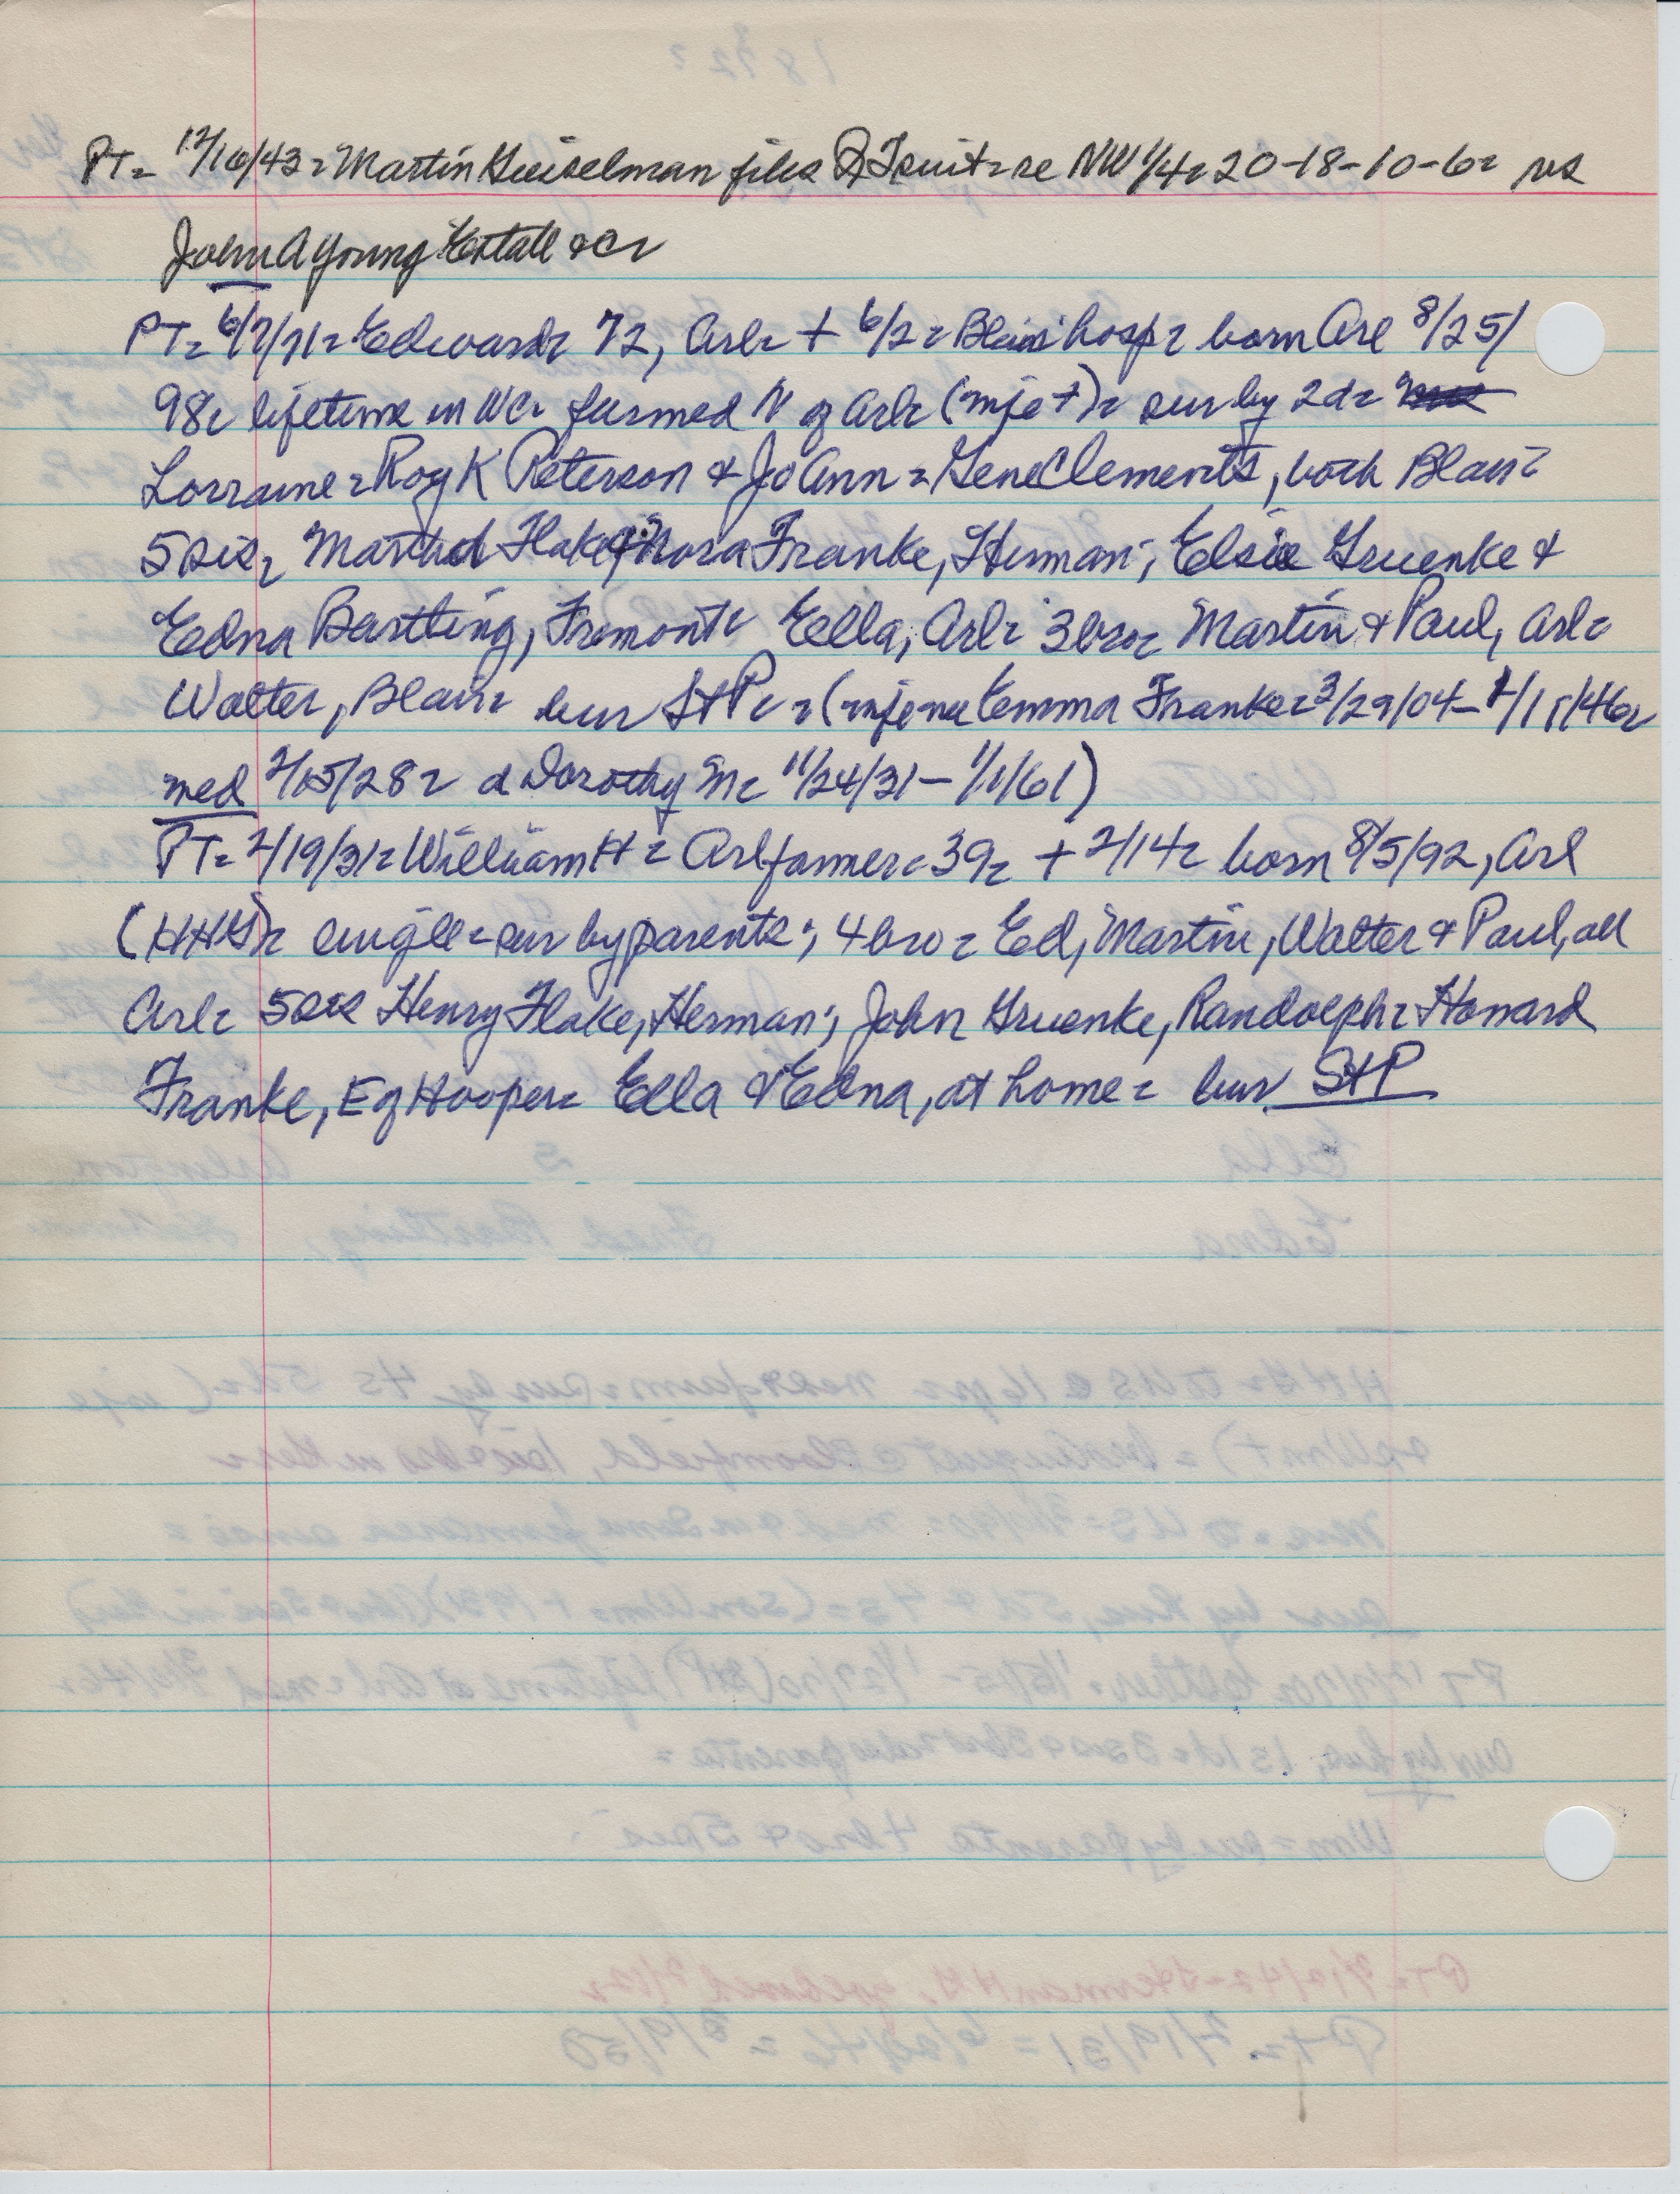 PT= 12/16/43= Martin Geiselman files QT suit= re NW 1/4= 20-18-10-6= vs
John A Young Et al &c=
PT= 6/7/71= Edward= 72, Arl= + 6/2= Blair hosp= born Arl 8/25/
98= lifetime in WC= farmed N of Arl= (wife +)= sur by 2d=
Lorraine= Roy K Peterson & JoAnn= Gene Clements, both Blair=
5 sis= Martha Flake & Nora Franke, Herman; Elsie Gruenke &
Edna Bartling, Fremont= Ella, Arl= 3 bro= Martin & Paul, Arl=
Walter, Blair= bur StP= = (wife nee Emma Franke= 3/29/04-
med 2/15/28= d Dorothy M= 11/24/31 - 1/1/61)
PT= 2/19/31= William H= Arl farmer= 39= + 2/14= born 8/5/92, Arl
(HHG)= single= sur by parents; 4 bro= Ed, Martin, Walter & Paul, all
Arl= 5 sis Henry Flake, Herman; John Gruenke, Randolph= Howard
Franke, E of Hooper= Ella & Edna, at home= bur StP